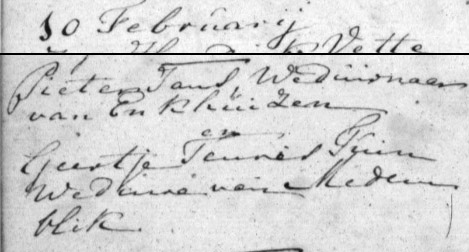 10 Februarij
Vette
Pieter Tans Weduwnaer
van Enkhuizen
en
Geertje Teunis Tuin
Weduwe van Medem
blik.